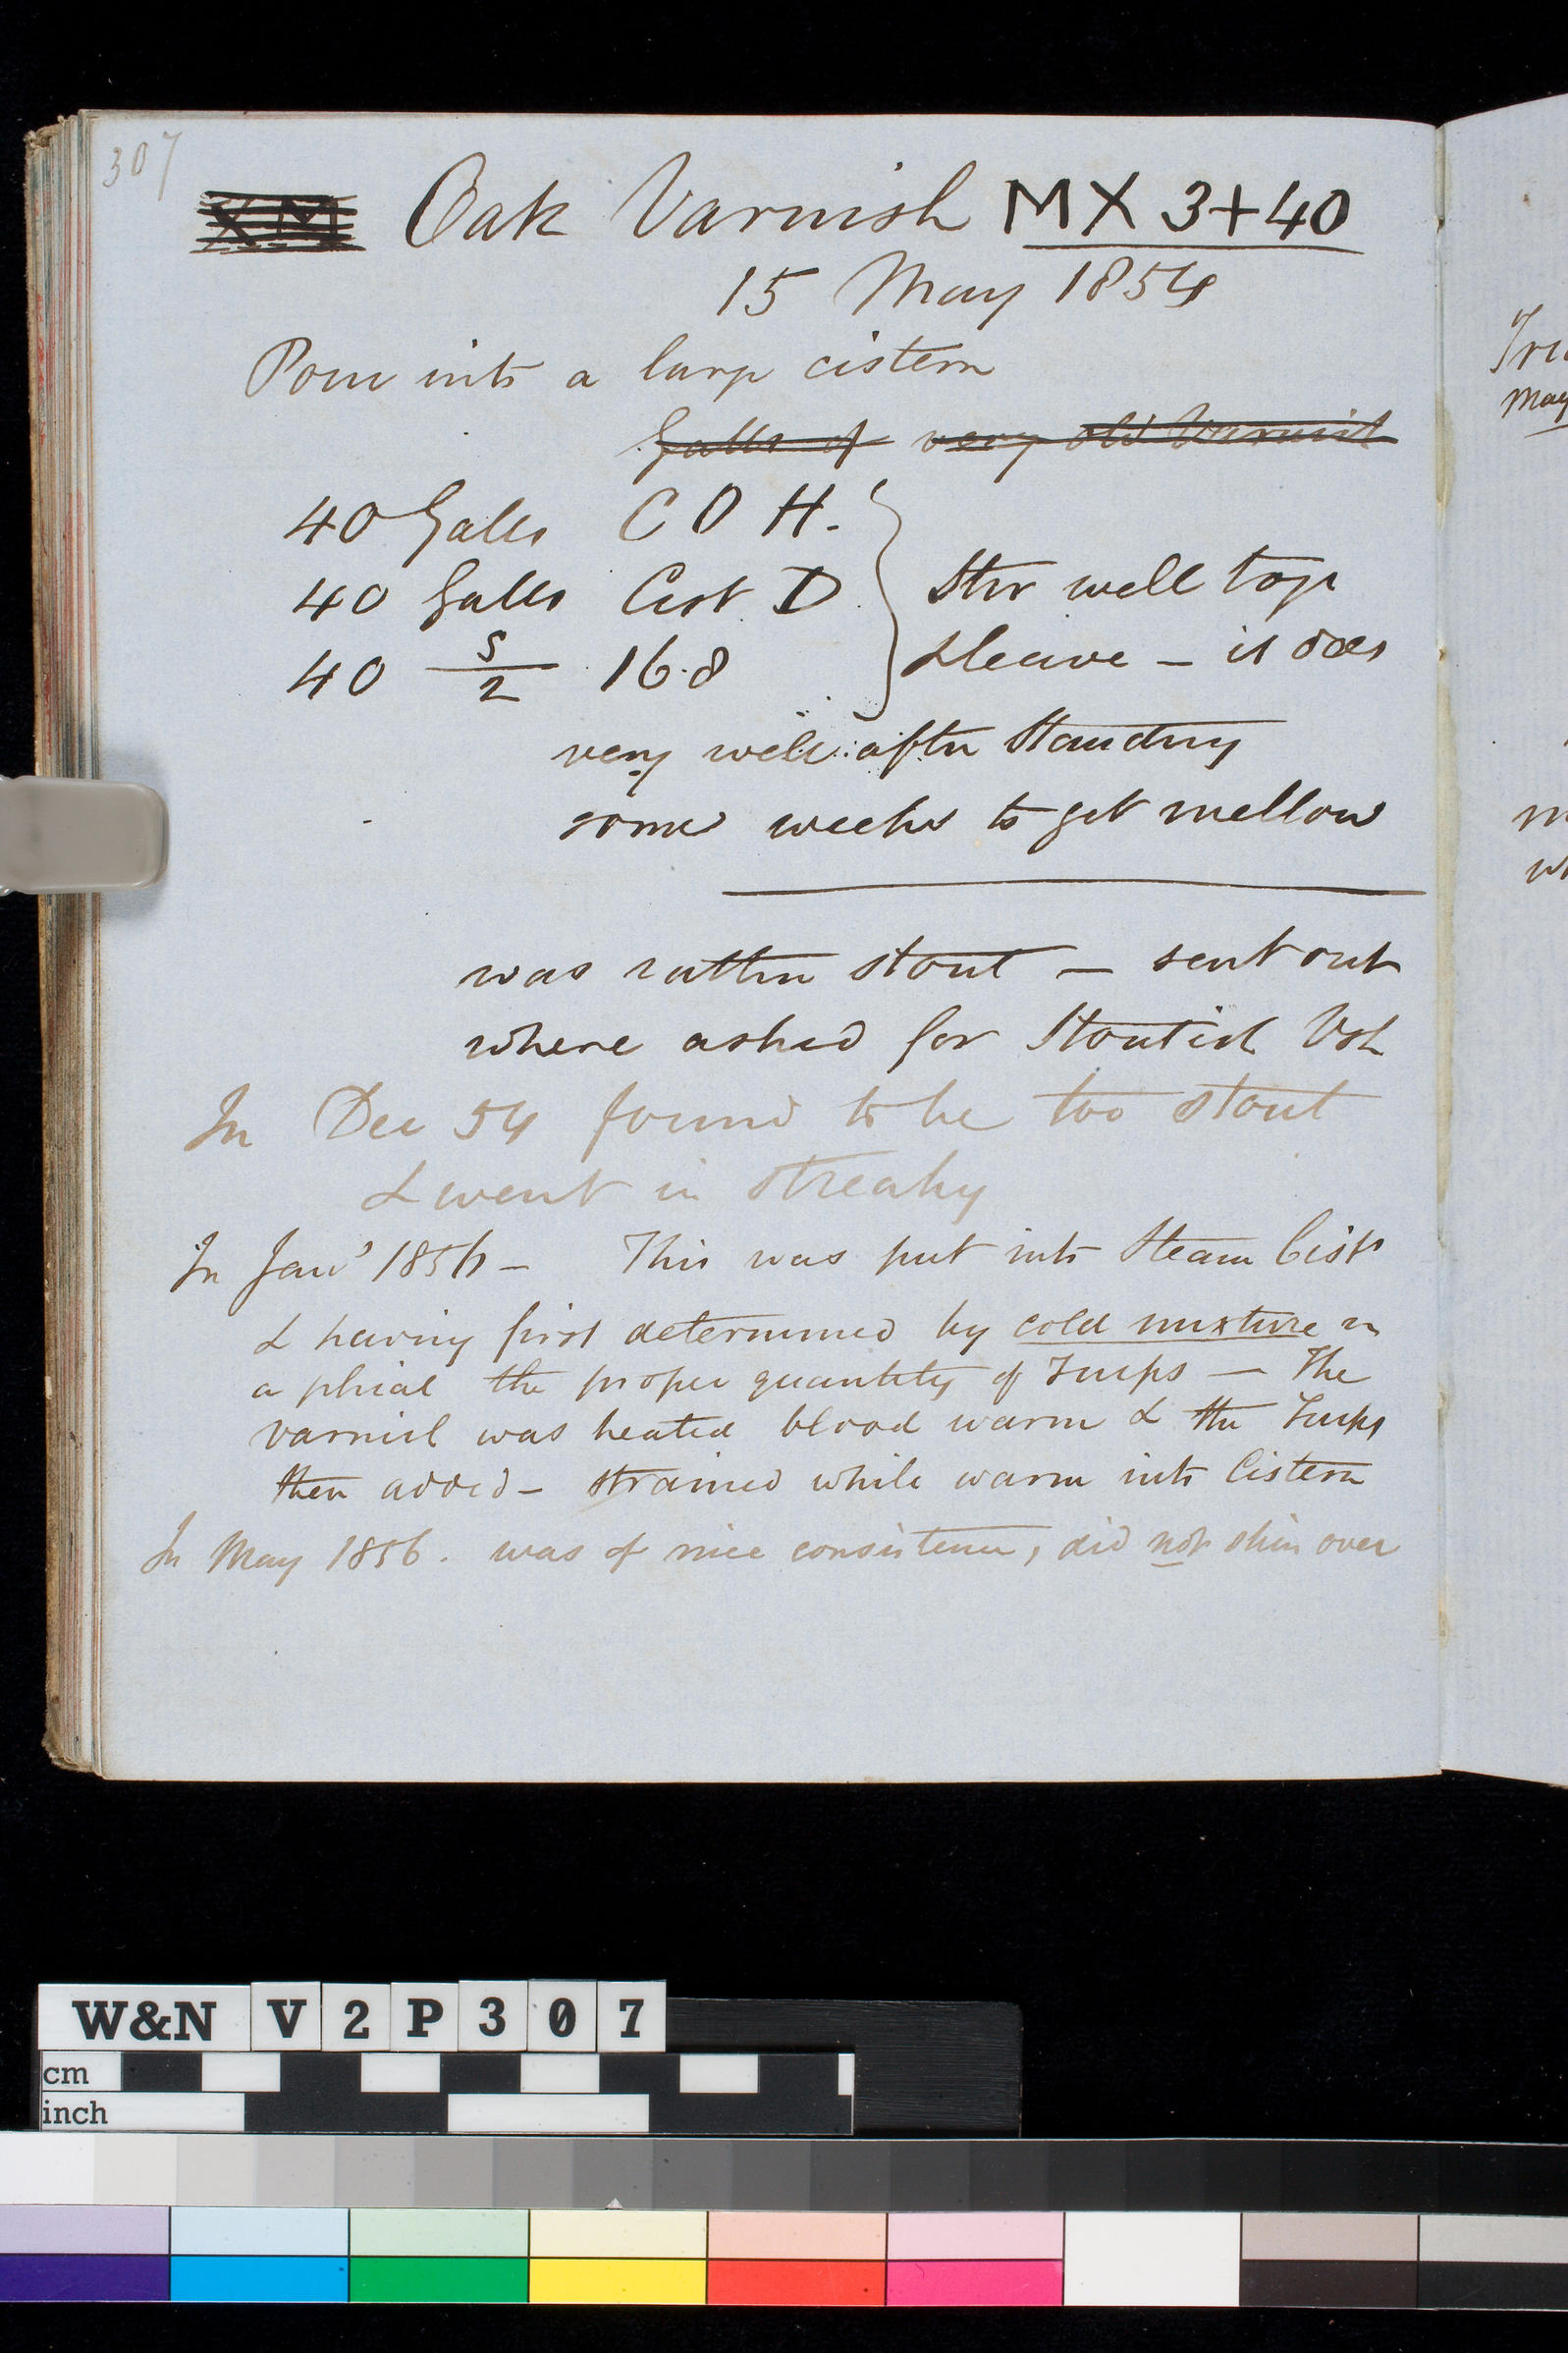 307
XM Oak Varnish MX 3+40
15 May 1854
Pour into a large cistern
Galls of very old Varnish
40 Galls C O H.
40 Galls Cist. D
40 S/2 16.8
Stir well togr
& leave – it does
very well after standing
some weeks to get mellow
was rather stout – sent out
where asked for stoutish Vsh
In Dec 54 found to be too stout
& went in streaky
In Jany 1856 – This was put into Steam Cistn
& having first determined by cold mixture in
a phial the proper quantity of Turps – The
varnish was heated blood warm & the Turps
then added – strained while warm into Cistern
In May 1856. was of nice consistence, did not skin over
May
W&N V2P307
cm
inch